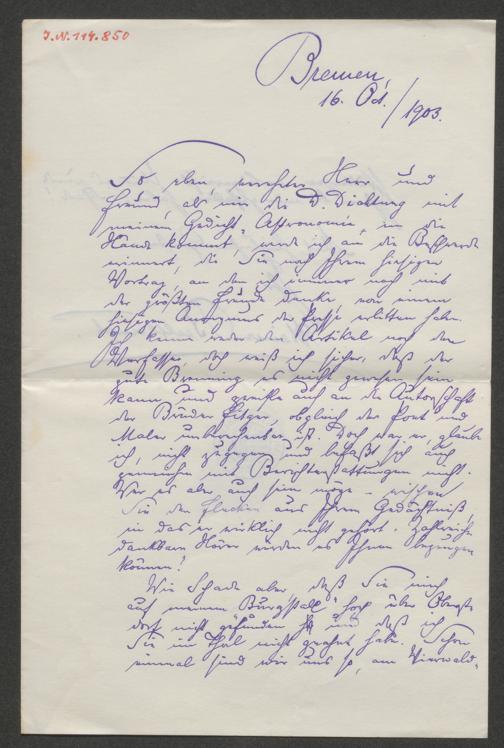 J.N. 114.850
Bremen,
16. Oct./1903.
So eben, verehrter Herr und
Freund, als mir die D. Dichtung mit
meinem Gedicht "Astronomie" in die
Hände kommt, werde ich an die Beschwerde
erinnert, die Sie nach Ihrem hiesigen
Vortrag, an den ich immer noch mit
der größten Freude denke, von einem
hiesigen Anonymus der Presse erlitten haben.
Ich kenne weder den Artikel noch den
Verfasser, doch weiß ich sicher, daß der
gute Bräuning es nicht gewesen sein
kann und zweifle auch an der Autorschaft
der Brüder Fitger, obgleich der Poet und
Maler unberechenbar ist. Doch war er, glaube
ich, nicht zugegen und befaßt sich auch
mit Berichterstattungen nicht.
Wer es aber auch sein möge – wischen
Sie den Flecken aus Ihrem Gedächtniß,
in das er wirklich nicht gehört. Zahlreiche
dankbare Hörer werden es Ihnen bezeugen
können!
Wie Schade aber, daß Sie mich
auf meinem "Burgstall" hoch über Obersts
dorf nicht gefunden und daß ich
Sie im Thal nicht geahnt habe. Schon
einmal sind wir uns so, am Vierwald-